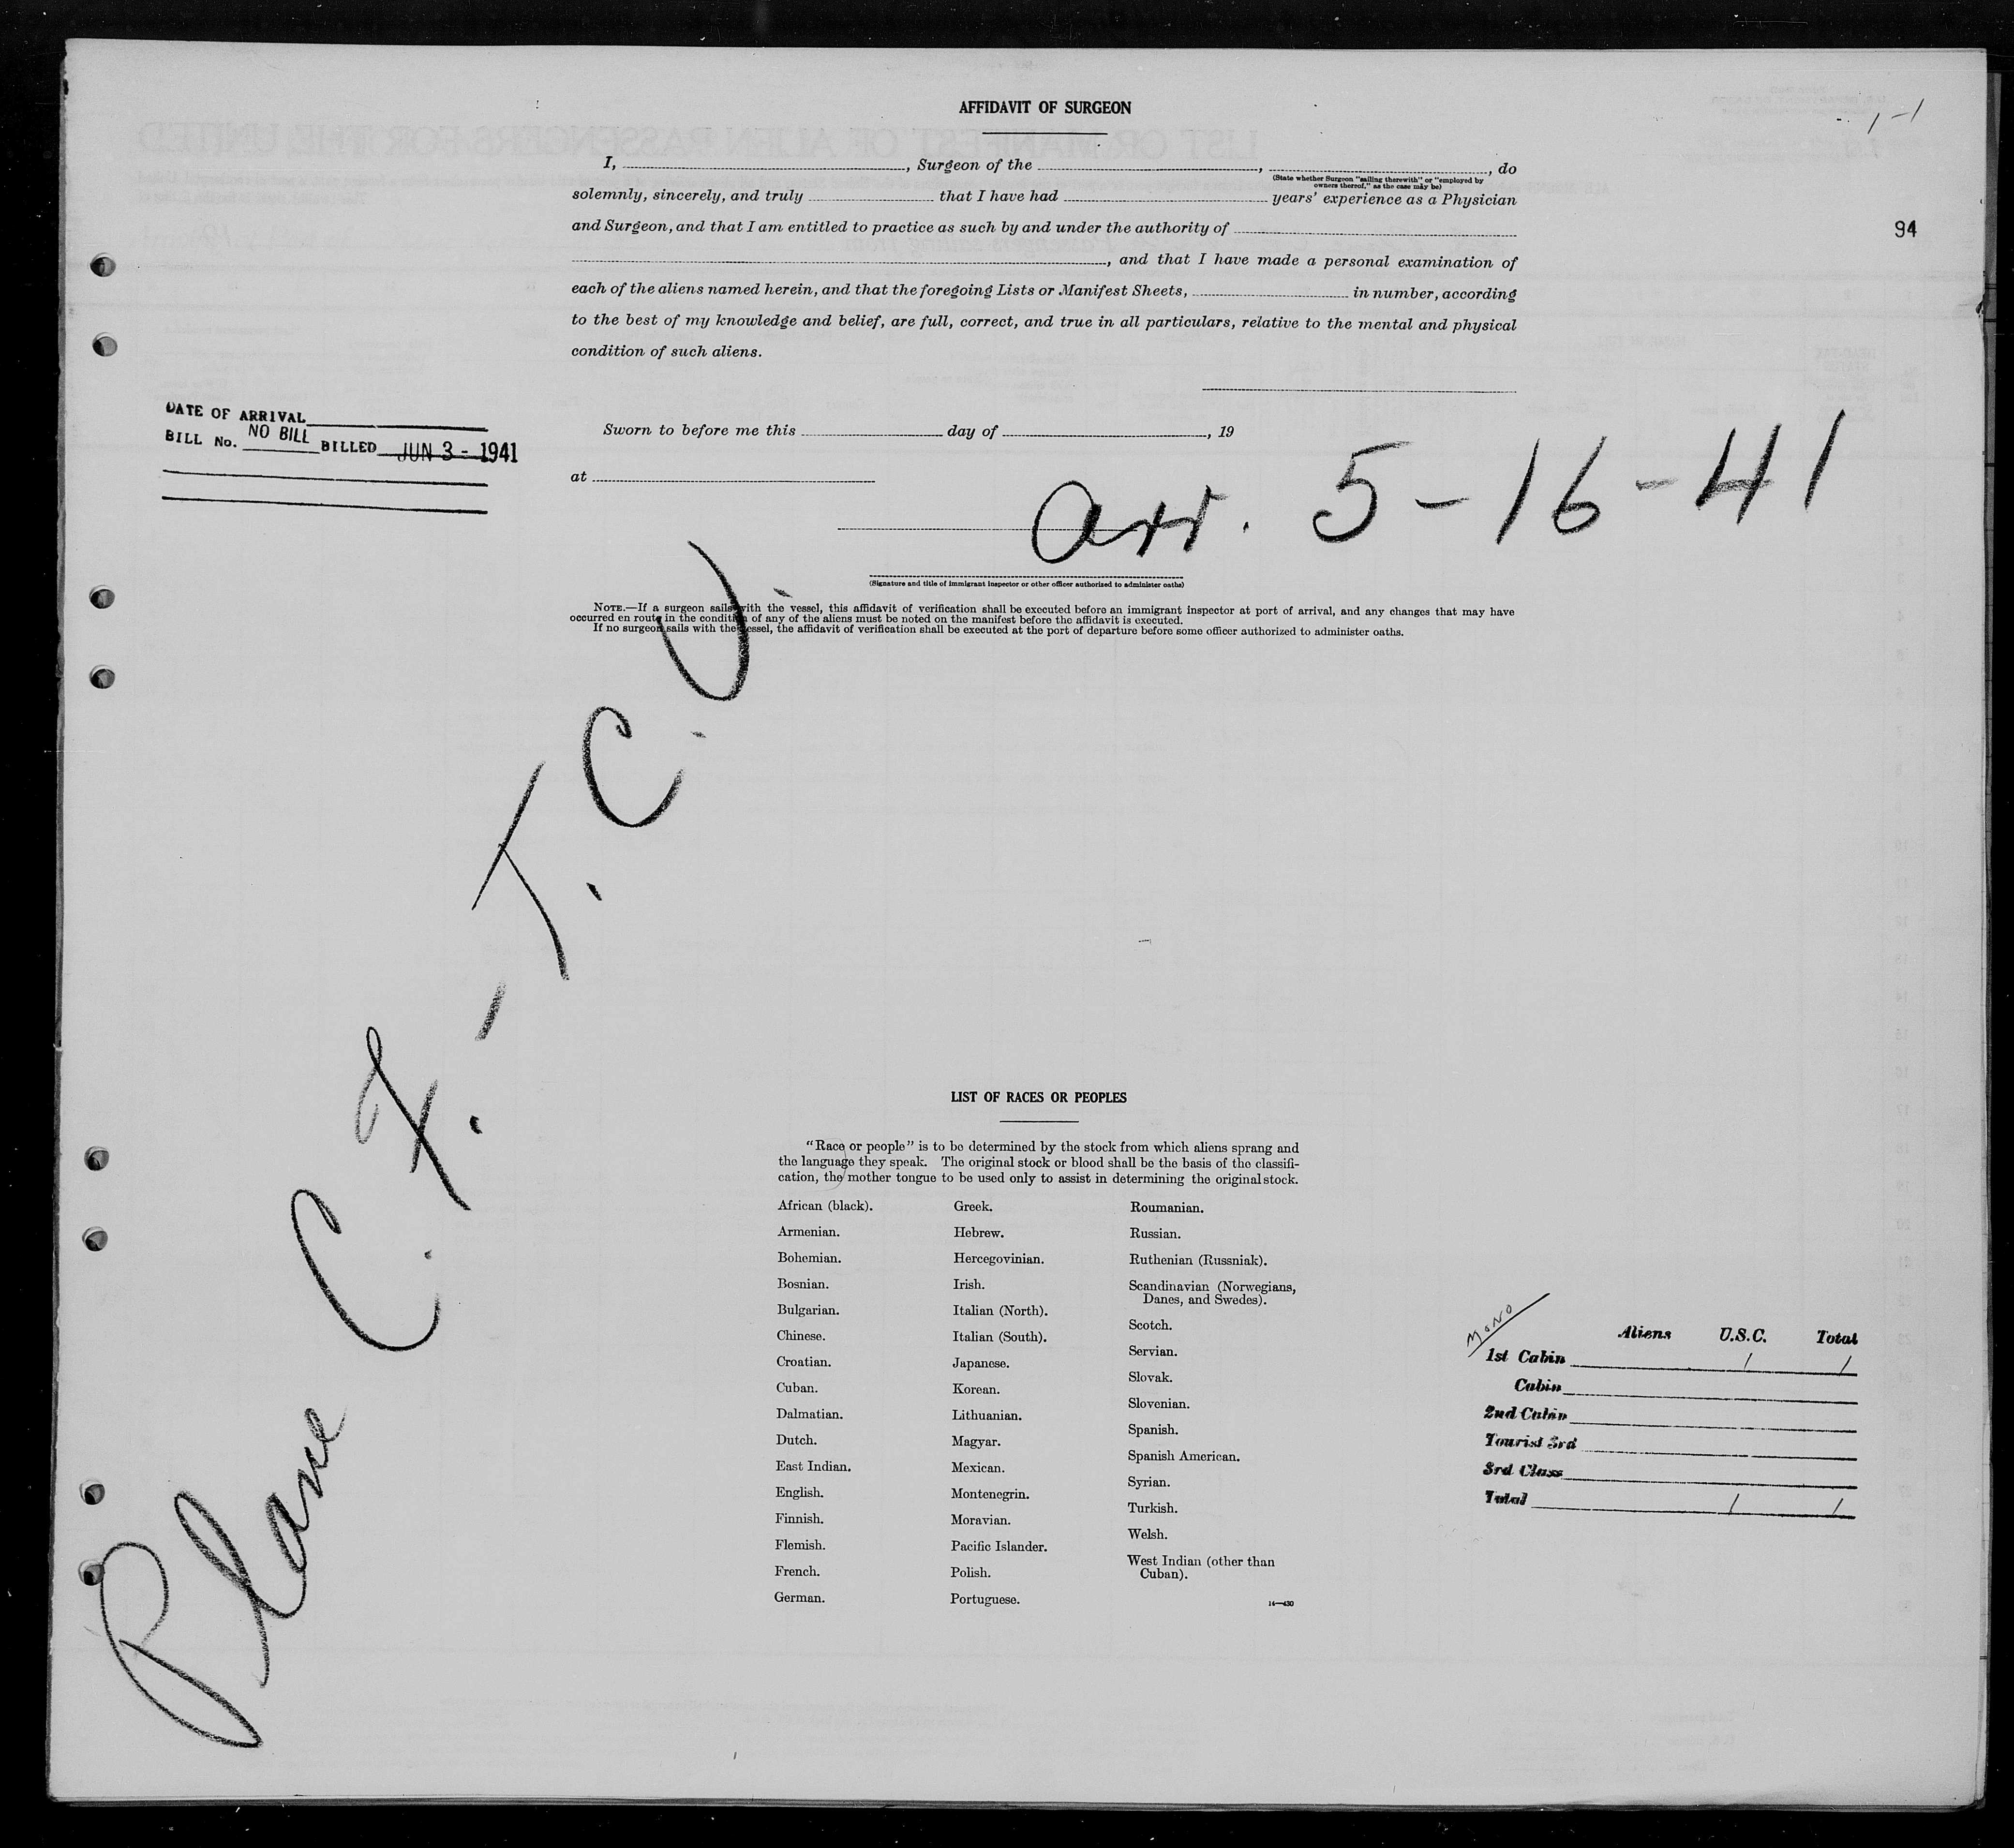 AFFIDAVIT OF SURGEON
1-1
I, , Surgeon of the , , do
(State whether Surgeon "sailing therewith" or "employed by
owners thereof," as the case may be)
solemnly, sincerely, and truly that I have had years' experience as a Physician
and Surgeon, and that I am entitled to practice as such by and under the authority of
94
, and that I have made a personal examination of
each of the aliens named herein, and that the foregoing Lists or Manifest Sheets, in number, according
to the best of my knowledge and belief, are full, correct, and true in all particulars, relative to the mental and physical
condition of such aliens.
DATE OF ARRIVAL
BILL No. NO BILL BILLED JUN 3 - 1941
Sworn to before me this day of , 19
at
arr. 5-16-41
(Signature and title of immigrant inspector or other officer authorized to administer oaths)
NOTE.—If a surgeon sails with the vessel, this affidavit of verification shall be executed before an immigrant inspector at port of arrival, and any changes that may have
occurred en route in the condition of any of the aliens must be noted on the manifest before the affidavit is executed.
If no surgeon sails with the vessel, the affidavit of verification shall be executed at the port of departure before some officer authorized to administer oaths.
Plane C.F.-T.C.V.
LIST OF RACES OR PEOPLES
"Race or people" is to be determined by the stock from which aliens sprang and
the language they speak. The original stock or blood shall be the basis of the classifi-
cation, the mother tongue to be used only to assist in determining the original stock.
African (black).
Armenian.
Bohemian.
Bosnian.
Bulgarian.
Chinese.
Croatian.
Cuban.
Dalmatian.
Dutch.
East Indian.
English.
Finnish.
Flemish.
French.
German.
Greek.
Hebrew.
Hercegovinian.
Irish.
Italian (North).
Italian (South).
Japanese.
Korean.
Lithuanian.
Magyar.
Mexican.
Montenegrin.
Moravian.
Pacific Islander.
Polish.
Portuguese.
Roumanian.
Russian.
Ruthenian (Russniak).
Scandinavian (Norwegians,
Danes, and Swedes).
Scotch.
Servian.
Slovak.
Slovenian.
Spanish.
Spanish American.
Syrian.
Turkish.
Welsh.
West Indian (other than
Cuban).
14—430
Mono
Aliens U.S.C. Total
1st Cabin 1 1
Cabin
2nd Cabin
Tourist 3rd
3rd Class
Total 1 1